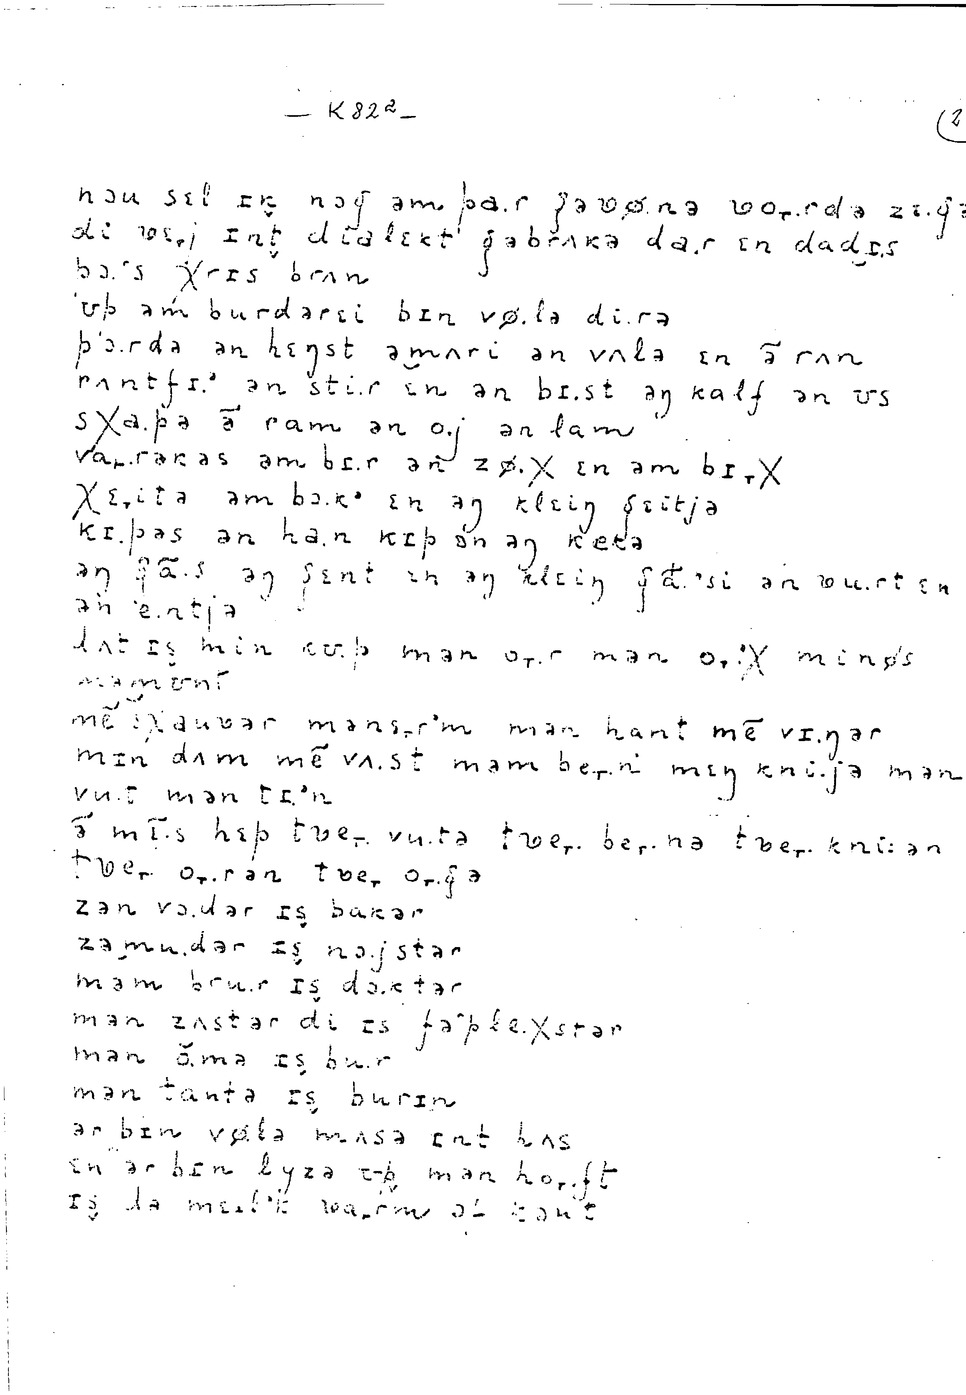 — K 82ᵃ —
(2
nɔu sɛl ɪk nɔɡ̆ əm pa.r ɡ̆əwø.nə wo.rdə zɛ.ɡ̆ə
di wɛ.j ɪnt dialɛkt ɡ̆əbrʌkə da.r ɛn dadɪs
bɔ.ᵊs χrɪs brʌn
ʊp əm burdərɛi bɪn vø.lə di.rə
pɔ.rdə ən hɛŋst əmʌri ən vʌlə ɛn ə̃ rʌn
rʌntfɪ.ᵊ ən sti.r ɛn ən bɪ.st əŋ kalf ən ʊs
sχa.pə ə̃ ram ən o.j ən lam
va.rəkəs əm bɪ.r ən zø.χ ɛn əm bɪ.χ
χɛ.itə əm bɔ.kᵊ ɛn əŋ klɛiŋ ɡ̆ɛitjə
kɪ.pəs ən ha.n kɪp ɔn əŋ ketə
əŋ ɡ̆ã.s əŋ ɡ̆ɛnt ɛn əŋ klɛiŋ ɡ̆ã.ᵊsi ən wu.rt ɛn
ən e.ntjə
dʌt ɪs min kʊ.p mən o.r mən o.ᵊχ min øs
mə mʊnt
mən hant mẽ vɪ.ŋər
min dʌm mẽ vʌ.st məm be.n mɛŋ kni.jə mən
vu.t mən tɪ.ᵊn
ə̃ mĩ.s hɛp twe. vu.tə twe. be.nə twe. kni:ən
twe. o.rən twe. o.ɡ̆ə
zən vɔ.dər ɪs bakər
zəmu.dər ɪs nɔ.jstər
məm bru.r ɪs dɔ.ktər
mən zʌstər di ɪs fəᵊple.χstər
mən õ.mə ɪs bu.r
mən tantə ɪs burɪn
ər bɪn vø.lə mʌsə ɪnt hʌs
ɛn ər bɪn lyzə ʊp mən ho.ft
ɪs də mɛlᵊk wa.rm ɔf kɔut